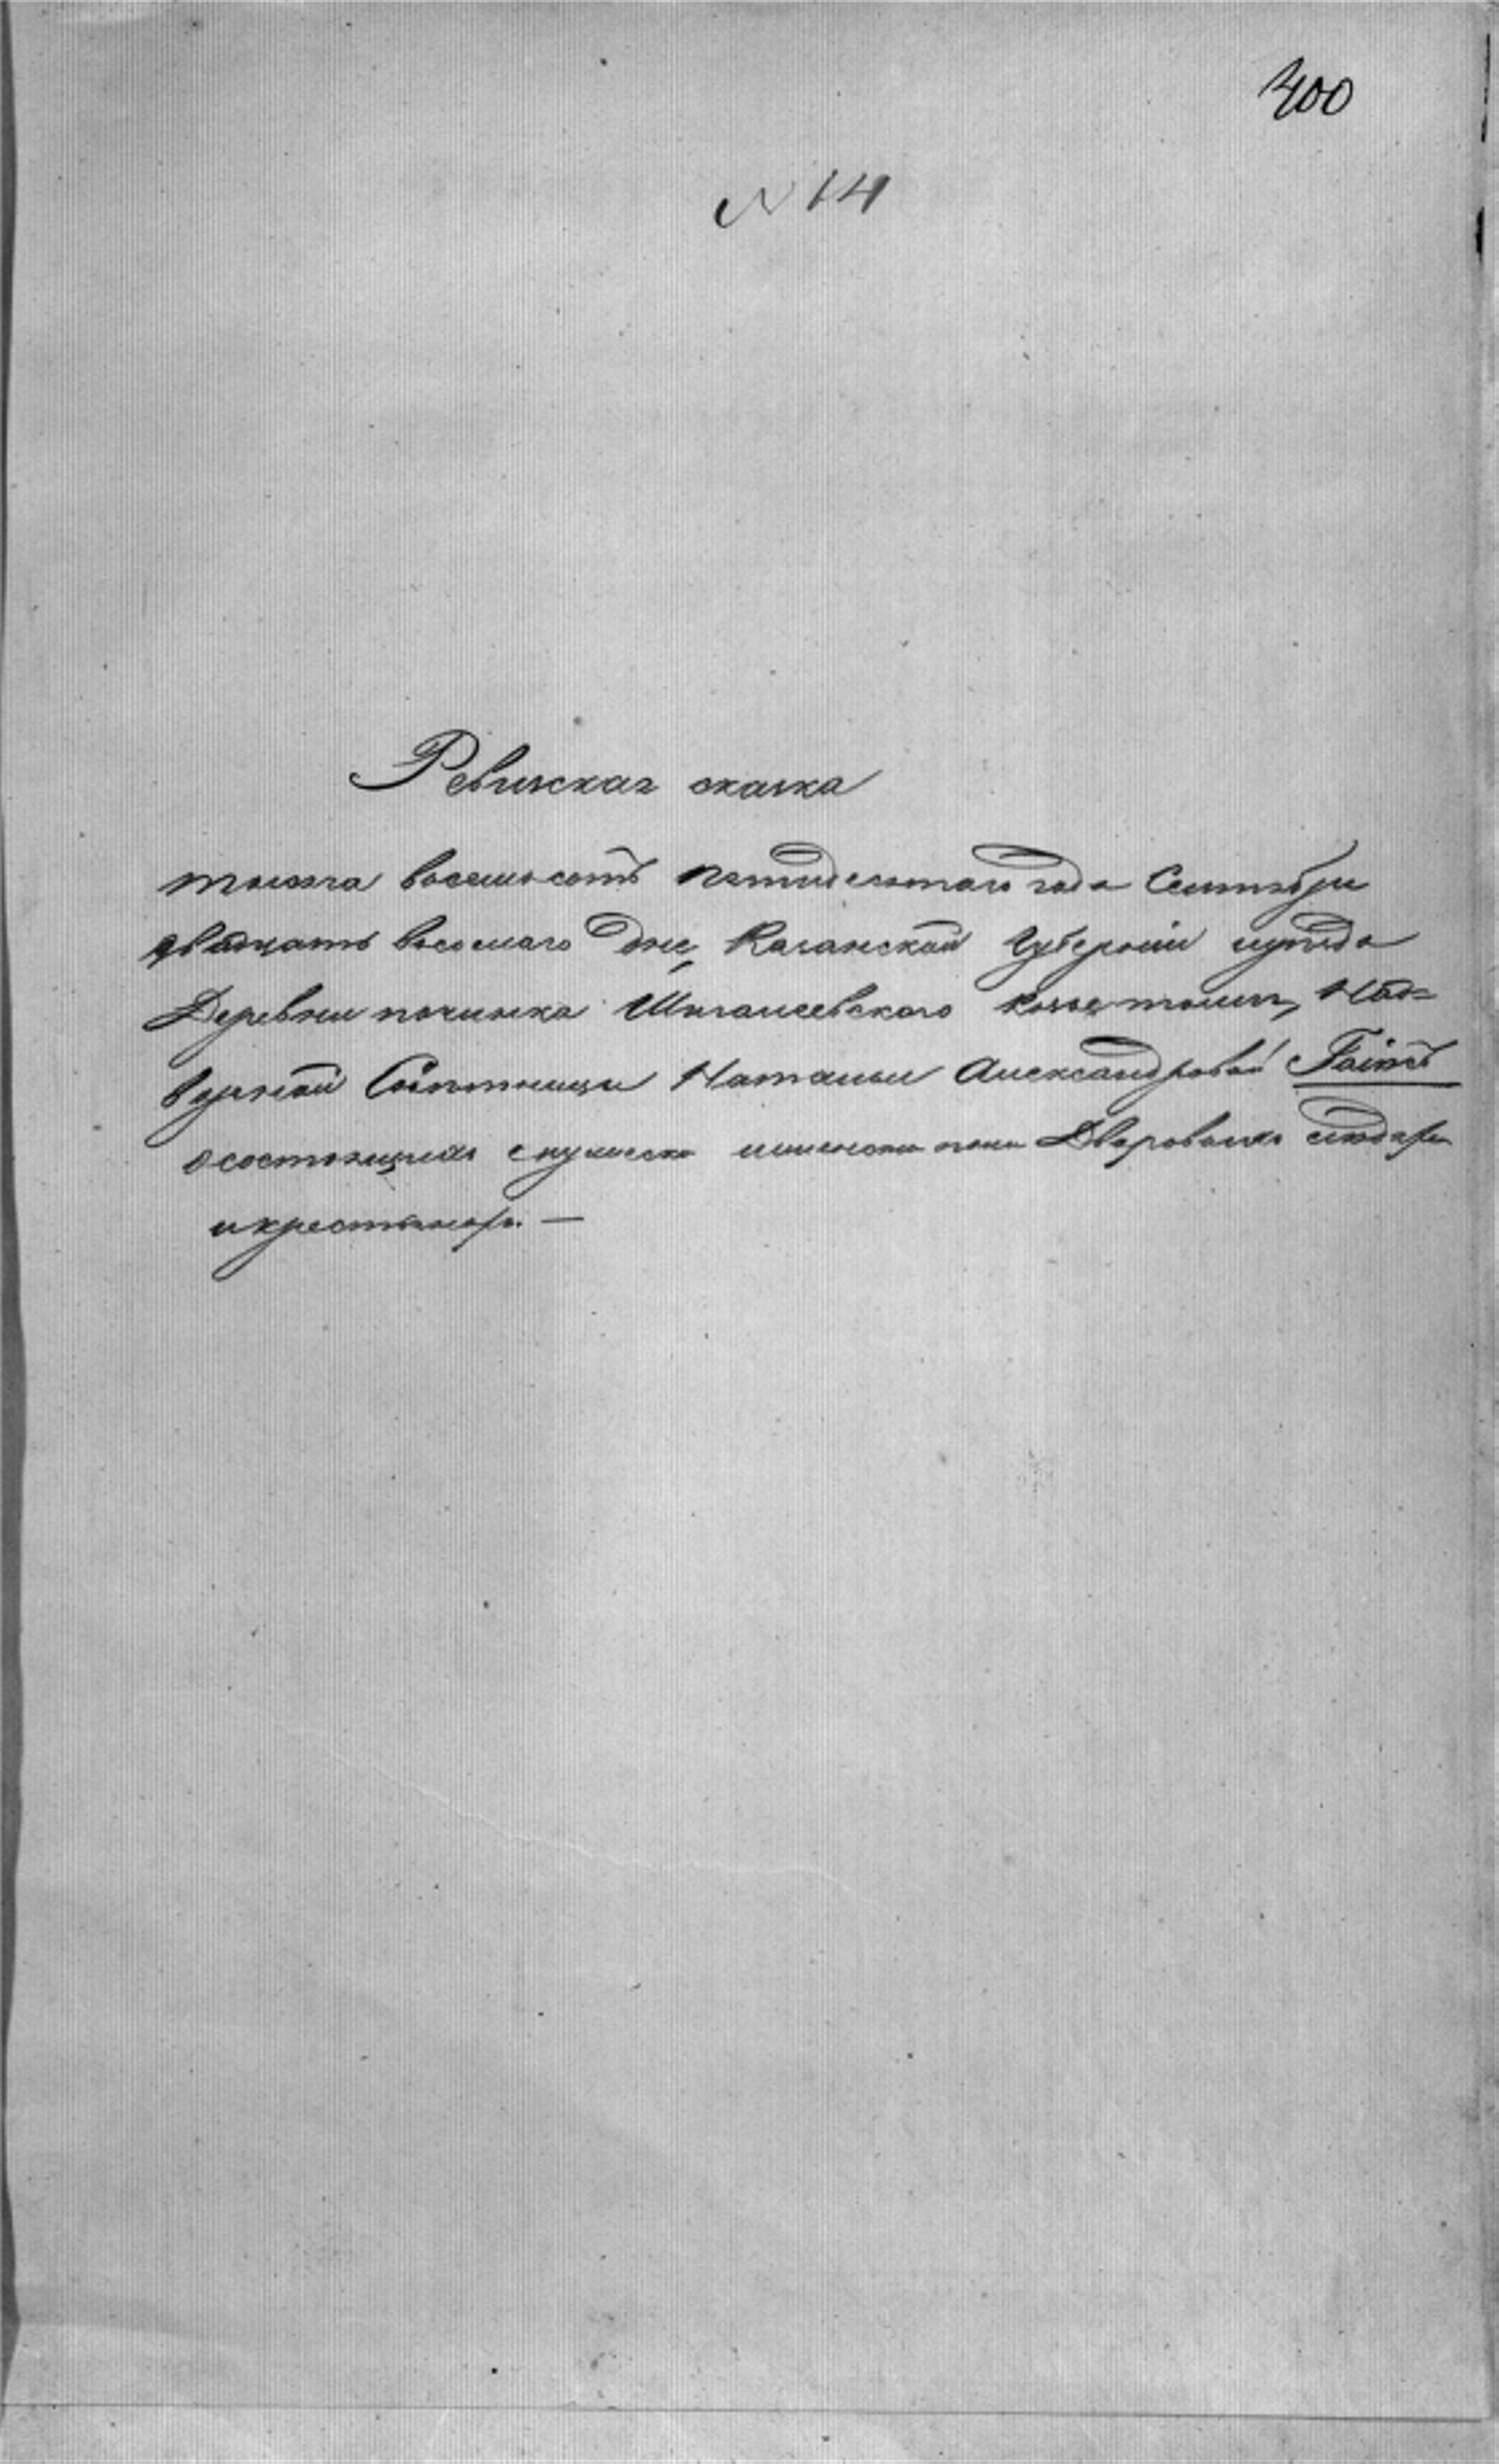 400
N 14
Ревизская сказка
тысяча восемьсотъ пятидесятаго года Сентября
двадцать восьмаго дня, Казанской губерніи уѣзда
Деревни починка Шигалеевскаго тожъ, Над=
ворной Совѣтницы Натальи Александровой Гейнсъ
о состоящихъ мужеска и женска пола Дворовыхъ людяхъ
и крестьянахъ. —